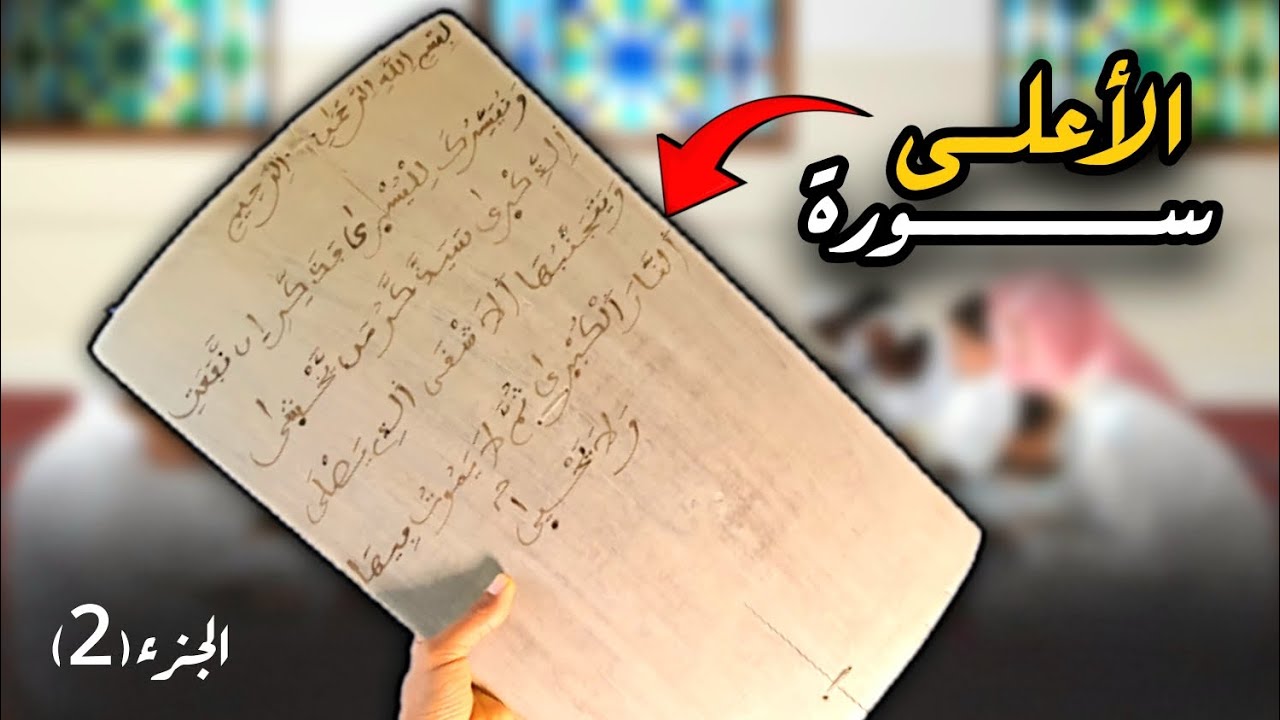 الأعلى
سورة
بسم الله الرحمن الرحيم
وَنُيَسِّرُكَ لِلْيُسْرَىٰ فَذَكِّرِ إِن نَّفَعَتِ
اِلذِّكْرَىٰ سَيَذَّكَّرُ مَن يَّخْشَىٰ
وَيَتَجَنَّبُهَا اَلَاشْقَى اَلذِے يَصْلَى
اَلنَّارَ اَلْكُبْرَىٰ ثُمَّ لَا يَمُوتُ فِيهَا
وَلَا يَحْيَىٰ
الجزء (2)